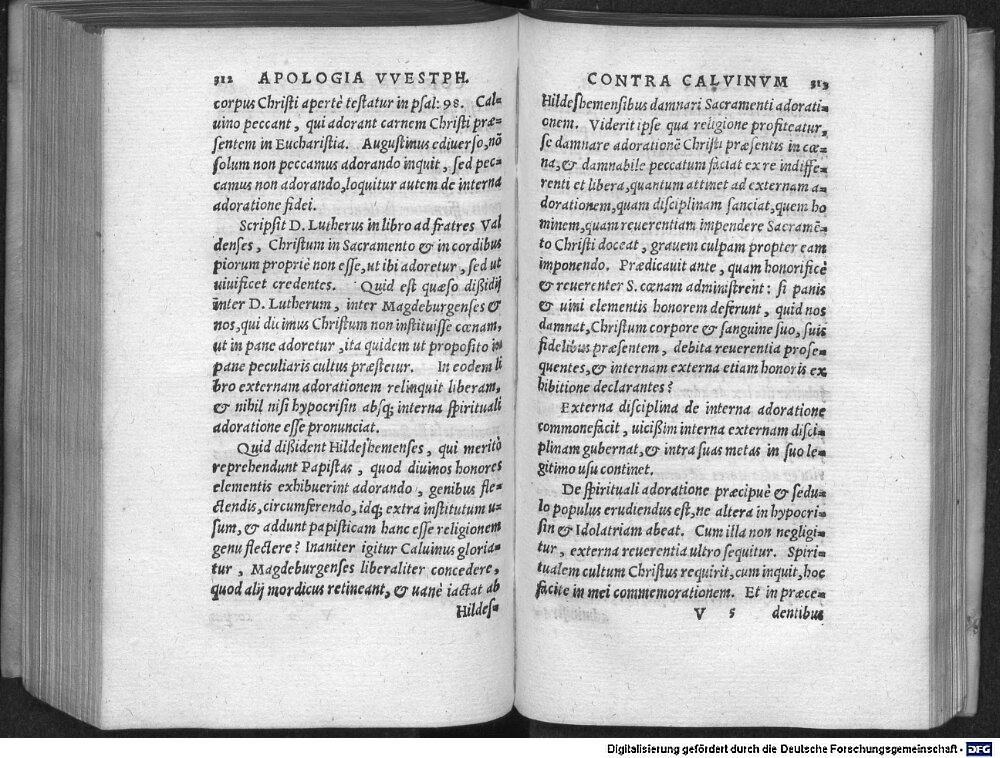 312 APOLOGIA VVESTPH.
corpus Christi apertè testatur in psal: 98. Cal-
uino peccant, qui adorant carnem Christi præ-
sentem in Eucharistia. Augustinus ediuerso, nõ
solum non peccamus adorando inquit, sed pec-
camus non adorando, loquitur autem de interna
adoratione fidei.
Scripsit D. Lutherus in libro ad fratres Val
denses, Christum in Sacramento & in cordibus
piorum propriè non esse, ut ibi adoretur, sed ut
uiuificet credentes. Quid est quæso dißidij
inter D. Lutherum, inter Magdeburgenses &
nos, qui dicimus Christum non instituisse cœnam,
ut in pane adoretur, ita quidem ut proposito in
pane peculiaris cultus præstetur. In eodem li
bro externam adorationem relinquit liberam,
& nihil nisi hypocrisin absq; interna spirituali
adoratione esse pronunciat.
Quid dißident Hildeshemenses, qui meritò
reprehendunt Papistas, quod diuinos honores
elementis exhibuerint adorando, genibus fle-
ctendis, circumferendo, idq; extra institutum u-
sum, & addunt papisticam hanc esse religionem
genu flectere? Inaniter igitur Caluinus gloria-
tur, Magdeburgenses liberaliter concedere,
quod alij mordicus retineant, & uanè iactat ab
Hildes-
CONTRA CALVINVM 313
Hildeshemensibus damnari Sacramenti adorati-
onem. Viderit ipse qua religione profiteatur,
se damnare adorationē Christi præsentis in cœ-
na, & damnabile peccatum faciat ex re indiffe-
renti et libera, quantum attinet ad externam a-
dorationem, quam disciplinam sanciat, quem ho
minem, quam reuerentiam impendere Sacramē-
to Christi doceat, grauem culpam propter eam
imponendo. Prædicauit ante, quam honorificè
& reuerenter S. cœnam administrent: si panis
& uini elementis honorem deferunt, quid nos
damnat, Christum corpore & sanguine suo, suis
fidelibus præsentem, debita reuerentia prose-
quentes, & internam externa etiam honoris ex
hibitione declarantes?
Externa disciplina de interna adoratione
commonefacit, uicißim interna externam disci-
plinam gubernat, & intra suas metas in suo le-
gitimo usu continet.
De spirituali adoratione præcipuè & sedu-
lo populus erudiendus est, ne altera in hypocri-
sin & Idolatriam abeat. Cum illa non negligi-
tur, externa reuerentia ultro sequitur. Spiri-
tualem cultum Christus requirit, cum inquit, hoc
facite in mei commemorationem. Et in præce-
V 5 dentibus
Digitalisierung gefördert durch die Deutsche Forschungsgemeinschaft - DFG